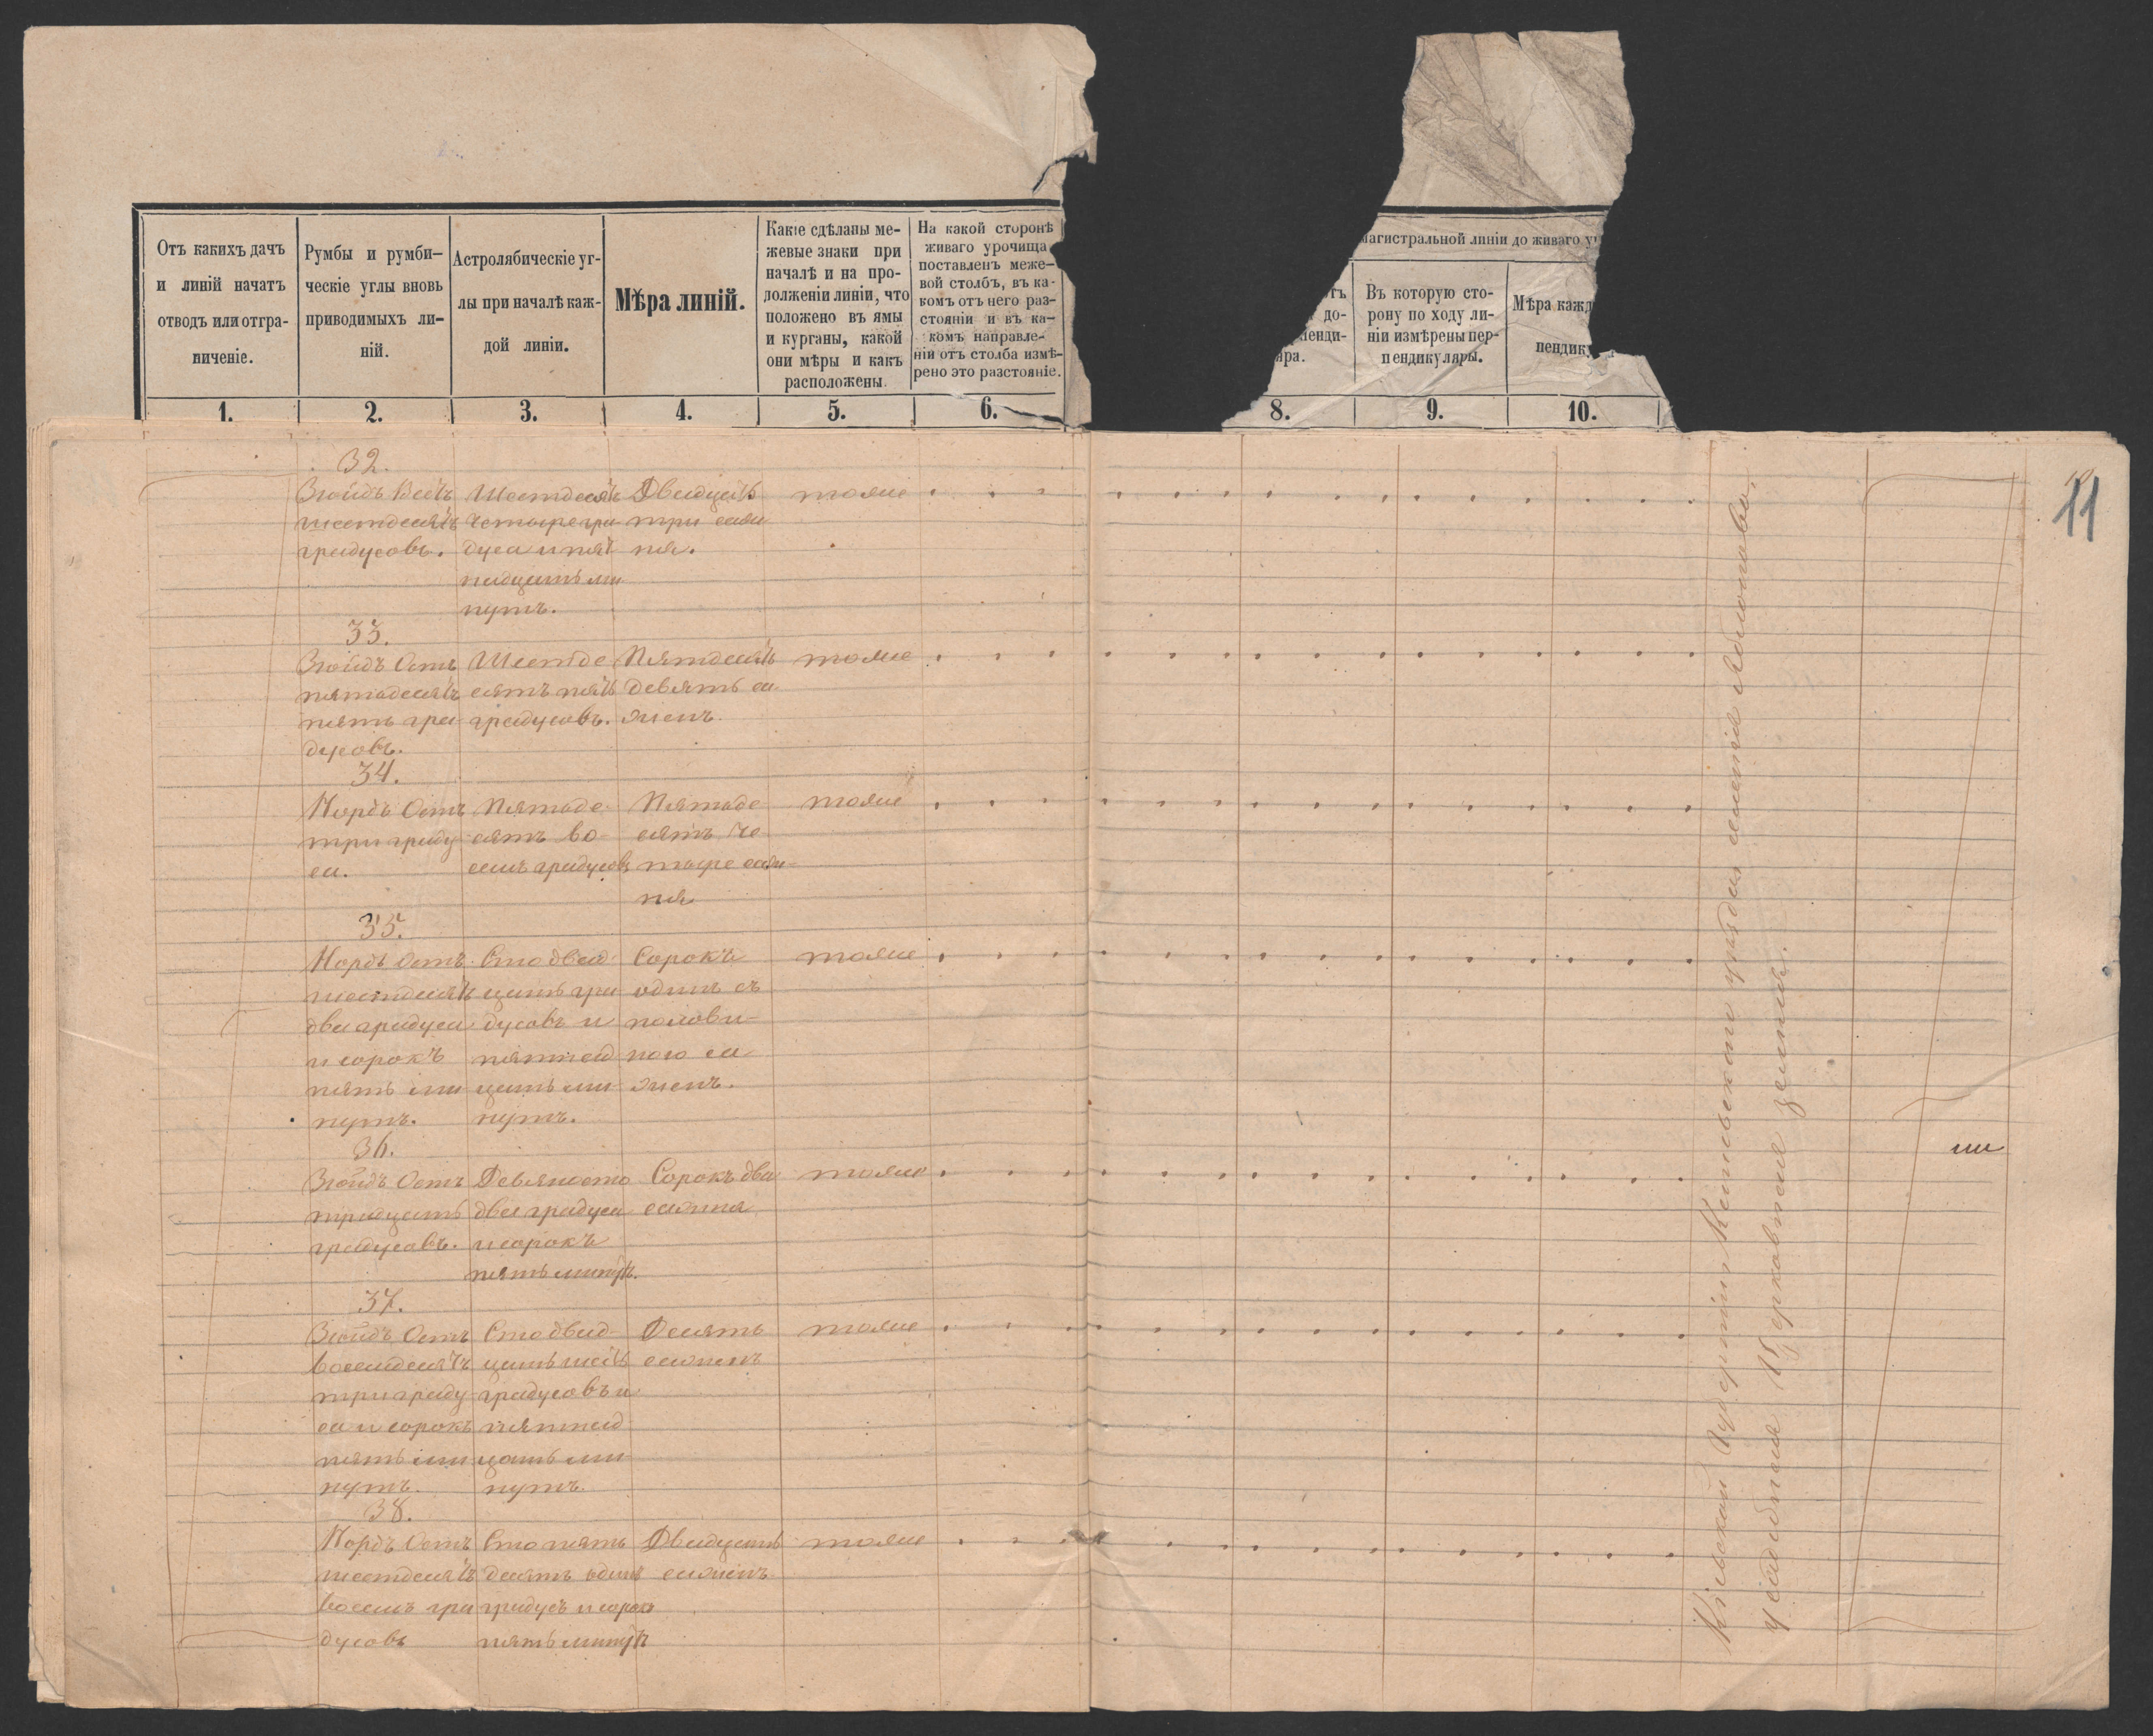 Отъ какихъ дачъ
и линій начатъ
отводъ или отгра-
ниченіе.
Румбы и румби-
ческіе углы вновь
приводимыхъ ли-
ній.
Астролябическіе уг-
лы при началѣ каж-
дой линіи.
Мѣра линій.
Какіе сдѣланы ме-
жевые знаки при
началѣ и на про-
долженіи линіи, что
положено въ ямы
и курганы, какой
они мѣры и какъ
расположены.
На какой сторонѣ
живаго урочища
поставленъ меже-
вой столбъ, въ ка-
комъ отъ него раз-
стояніи и въ ка-
комъ направле-
ніи отъ столба измѣ-
рено это разстояніе.
магистральной линіи до живаго
до-
пенди-
яра.
Въ которую сто-
рону по ходу ли-
ніи измѣрены пер-
пендикуляры.
Мѣра кажд
пендик
1. 2. 3. 4. 5. 6. 8. 9. 10.
11
32.
Зюйдъ Вестъ
шестдесятъ
градусовъ.
Шестдесятъ
четыре гра
дуса и пят
надцать ми
нутъ.
Двадцать
три саже
ня.
тоже
33.
Зюйдъ Остъ
пятьдесятъ
пять гра
дусовъ.
Шестьде
сятъ пять
градусовъ.
Пятдесятъ
девять са
женъ.
тоже
34.
Нордъ Остъ
три граду
са.
Пятьде
сятъ во-
семь градусовъ
Пятьде
сятъ че
тыре саже-
ня
тоже
35.
Нордъ Остъ
шестдесятъ
два градуса
и сорокъ
пять ми
нутъ.
Сто двад
цать гра
дусовъ и
пятнад
цать ми
нутъ.
Сорокъ
одинъ съ
полови-
ною са
женъ.
тоже
36.
Зюйдъ Остъ
тридцать
градусовъ.
Девяносто
два градуса
и сорокъ
пять минутъ.
Сорокъ два
сажня
тоже
37.
Зюйдъ Остъ
восемдесятъ
три граду
са и сорокъ
пять ми
нутъ.
Сто двад
цать шесть
градусовъ и
пятнад
цать ми
нутъ.
Десять
саженъ
тоже
38.
Нордъ Остъ
шестдесятъ
восемь гра
дусовъ
Сто пять
десятъ одинъ
градусъ и сорокъ
пять минутъ
Двадцать
саженъ
тоже
Кіевской Губерніи
уѣзда
усадебная Церковная земля.